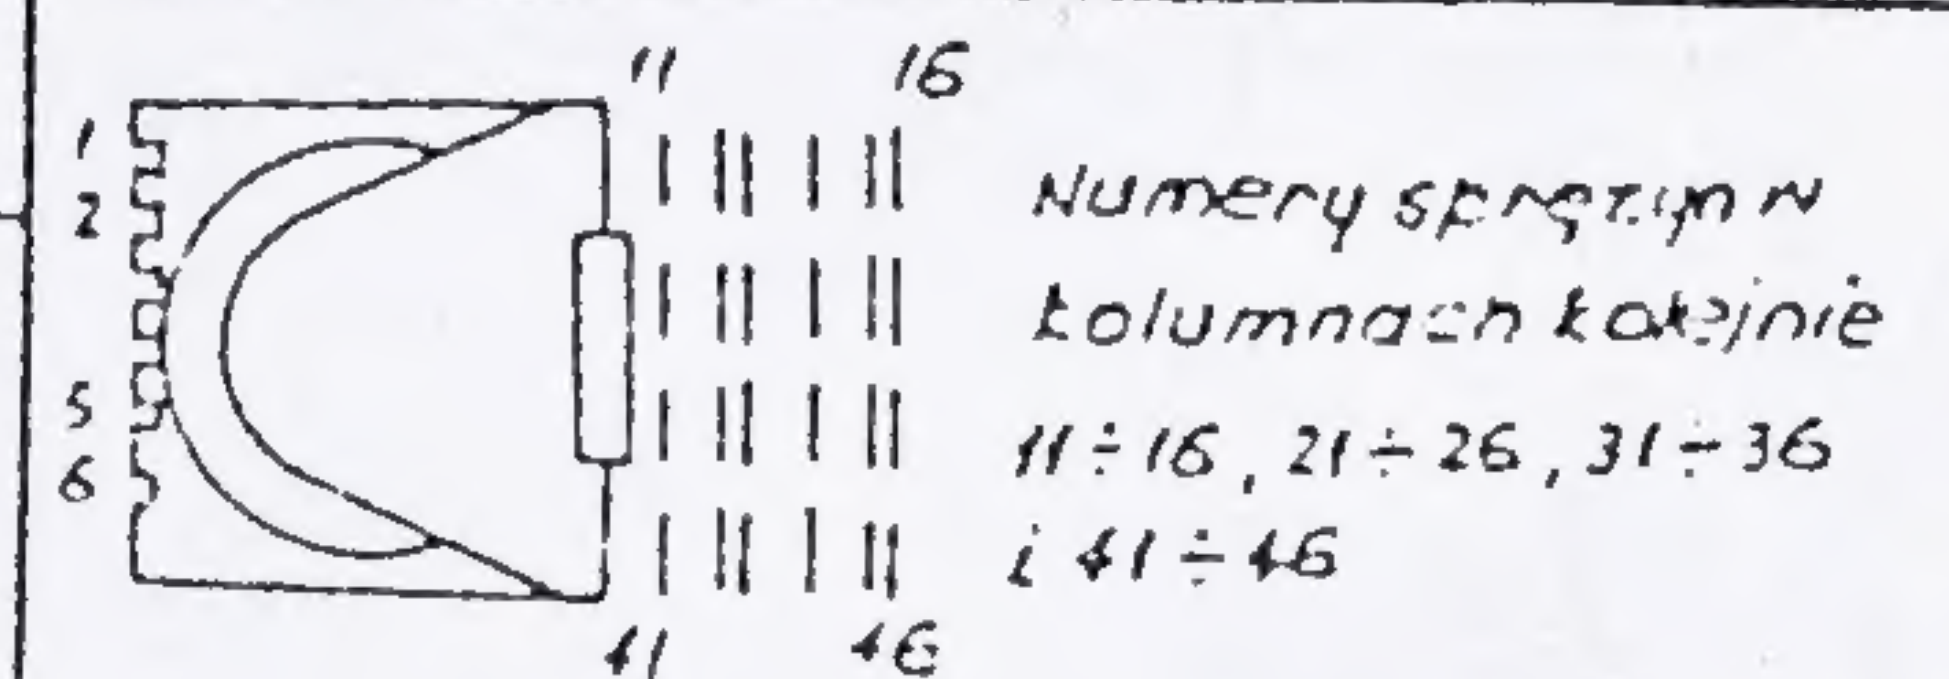 11 16
1
2
5
6
41 46
Numery sprężyn w
kolumnach kolejnie
11÷16, 21÷26, 31÷36
i 41÷46